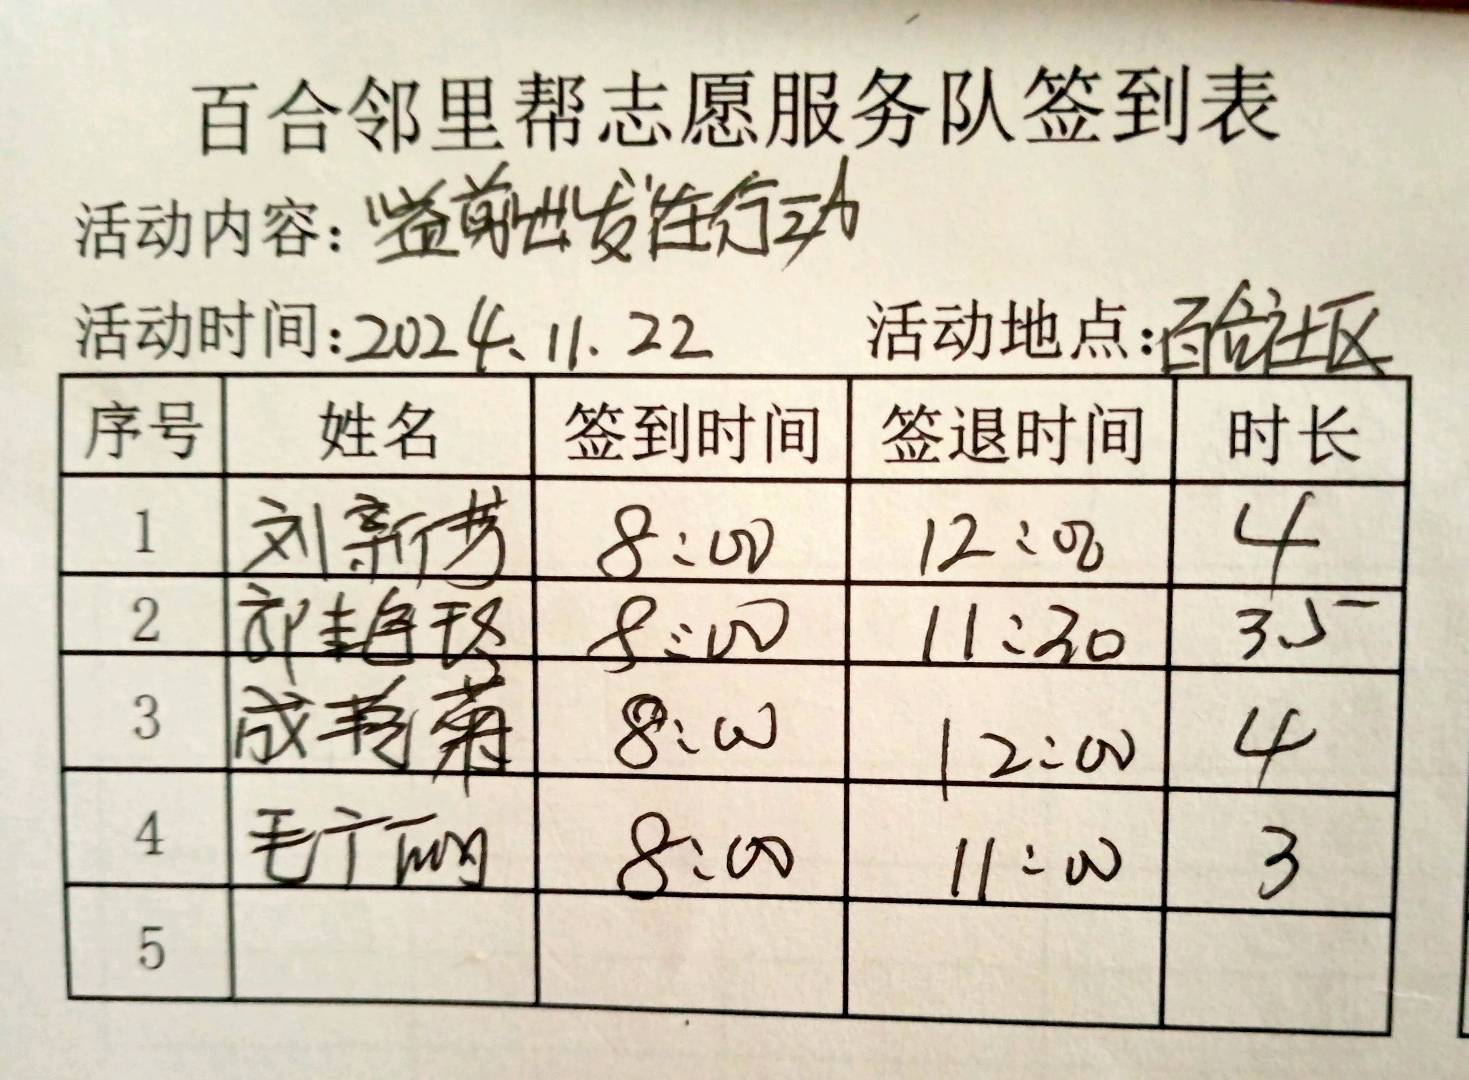 百合邻里帮志愿服务队签到表
活动内容：“益剪出发”在行动
活动时间：2024.11.22 活动地点：百合社区
序号 姓名 签到时间 签退时间 时长
1 刘新芳 8:00 12:00 4
2 郭艳玲 8:00 11:30 3.5
3 成艳菊 8:00 12:00 4
4 毛广丽 8:00 11:00 3
5